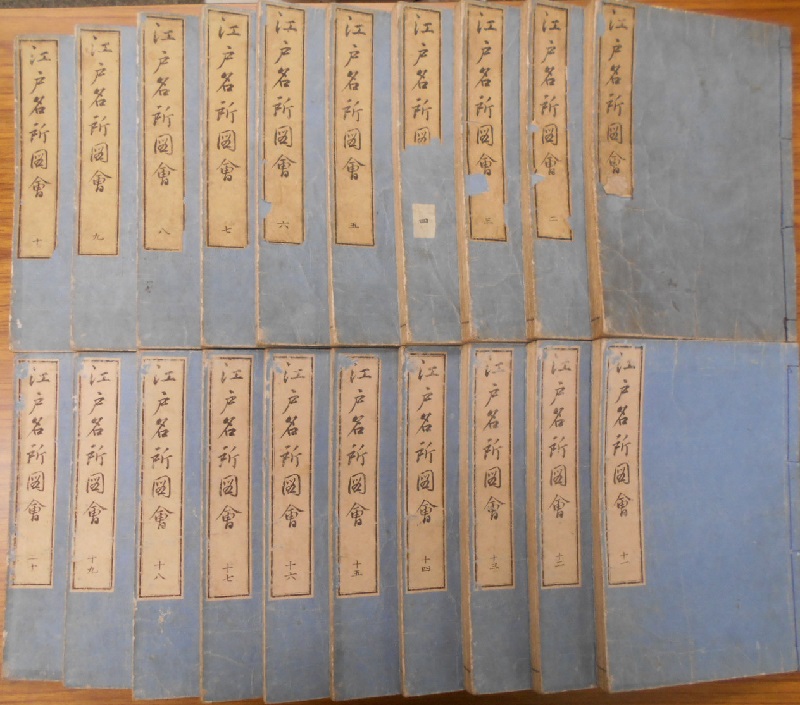 江戸名所圖會
江戸名所圖會 二
江戸名所圖會 三
江戸名所圖 四
江戸名所圖會 五
江戸名所圖會 六
江戸名所圖會 七
江戸名所圖會 八
江戸名所圖會 九
江戸名所圖會 十
江戸名所圖會 十一
江戸名所圖會 十二
江戸名所圖會 十三
江戸名所圖會 十四
江戸名所圖會 十五
江戸名所圖會 十六
江戸名所圖會 十七
江戸名所圖會 十八
江戸名所圖會 十九
江戸名所圖會 二十